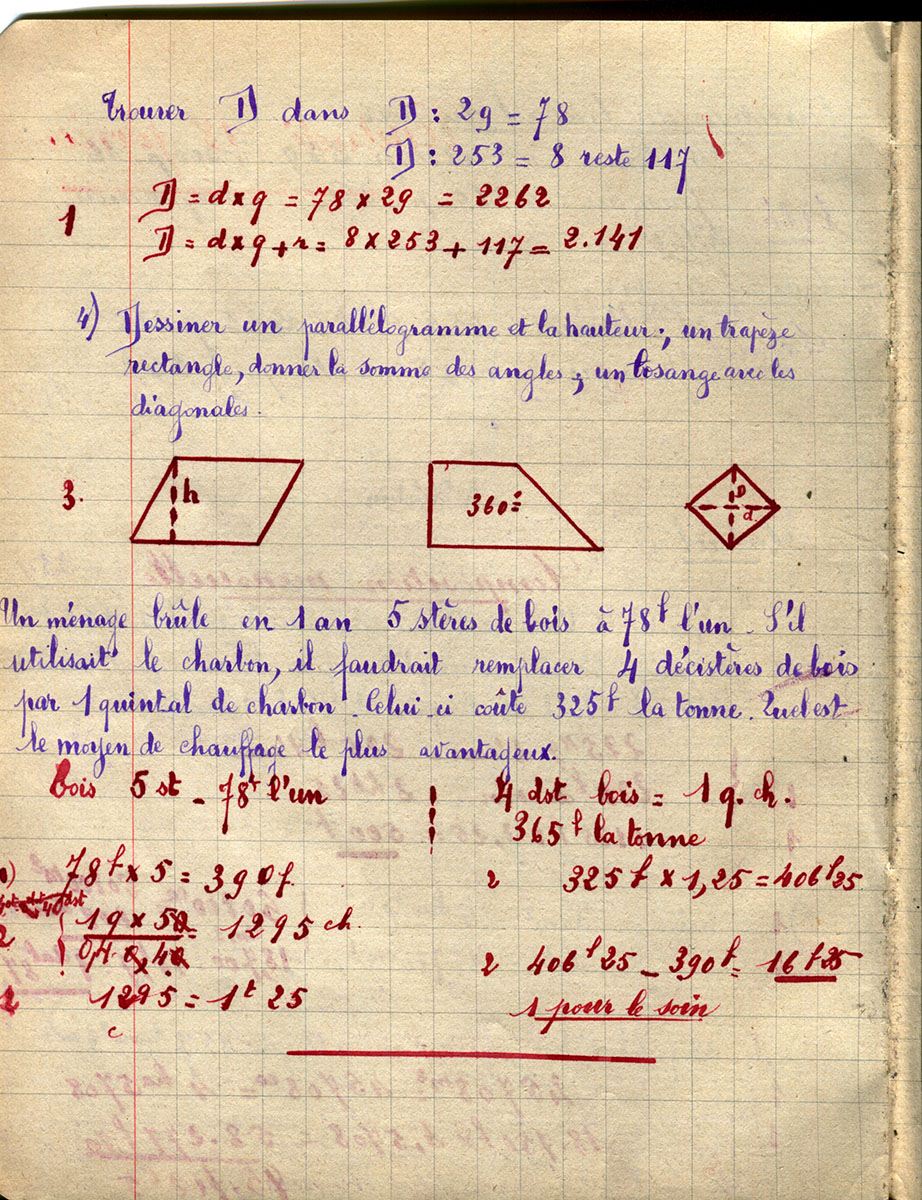 Trouver D dans D : 29 = 78
D : 253 = 8 reste 117
1 D = d x q = 78 x 29 = 2262
D = d x q + r = 8 x 253 + 117 = 2.141
4) Dessiner un parallélogramme et la hauteur ; un trapèze
rectangle, donner la somme des angles ; un losange avec les
diagonales.
3. h 360° D d
Un ménage brûle en 1 an 5 stères de bois à 78f l'un. S'il
utilisait le charbon, il faudrait remplacer 4 décistères de bois
par 1 quintal de charbon. Celui-ci coûte 325f la tonne. Quel est
le moyen de chauffage le plus avantageux.
Bois 5 st - 78f l'un
4 dst bois = 1 q. ch.
365f la tonne
78f x 5 = 390f.
2 325f x 1,25 = 406f25
2 1q x 50 = 12q5 ch
0,40
2 406f25 - 390f = 16f25
2 12q5 = 1t 25
1 pour le soin